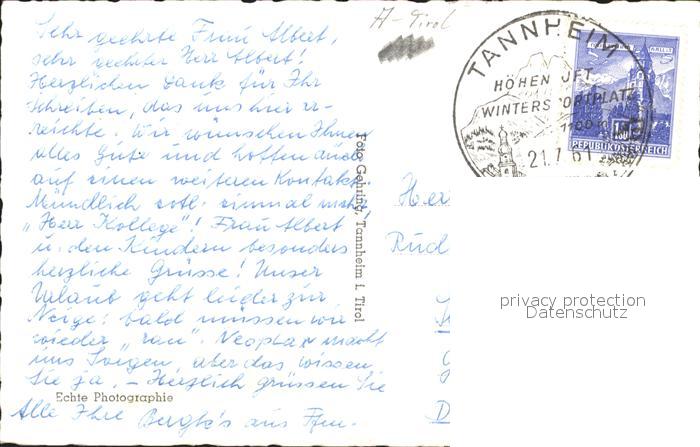 A-Tirol
Sehr geehrte Frau Albert,
sehr geehrter Herr Albert!
Herzlichen Dank für Ihr
Schreiben, das uns hier er-
reichte. Wir wünschen Ihnen
alles Gute und hoffen auch
auf einen weiteren Kontakt.
Mündlich evtl. einmal mehr,
"Herr Kollege"! Frau Albert
u. den Kindern besonders
herzliche Grüsse! Unser
Urlaub geht leider zur
Neige: bald müssen wir
wieder "ran". Neoplax macht
uns Sorgen, aber das wissen
Sie ja. – Herzlich grüssen Sie
Alle Ihre aus Ffm.
Echte Photographie
Foto Gehring, Tannheim i. Tirol
TANNHEIM
HÖHENLUFT
WINTERSPORTPLATZ
1100 m
21.7.61
1.50
REPUBLIK ÖSTERREICH
Her
Rud
privacy protection
Datenschutz